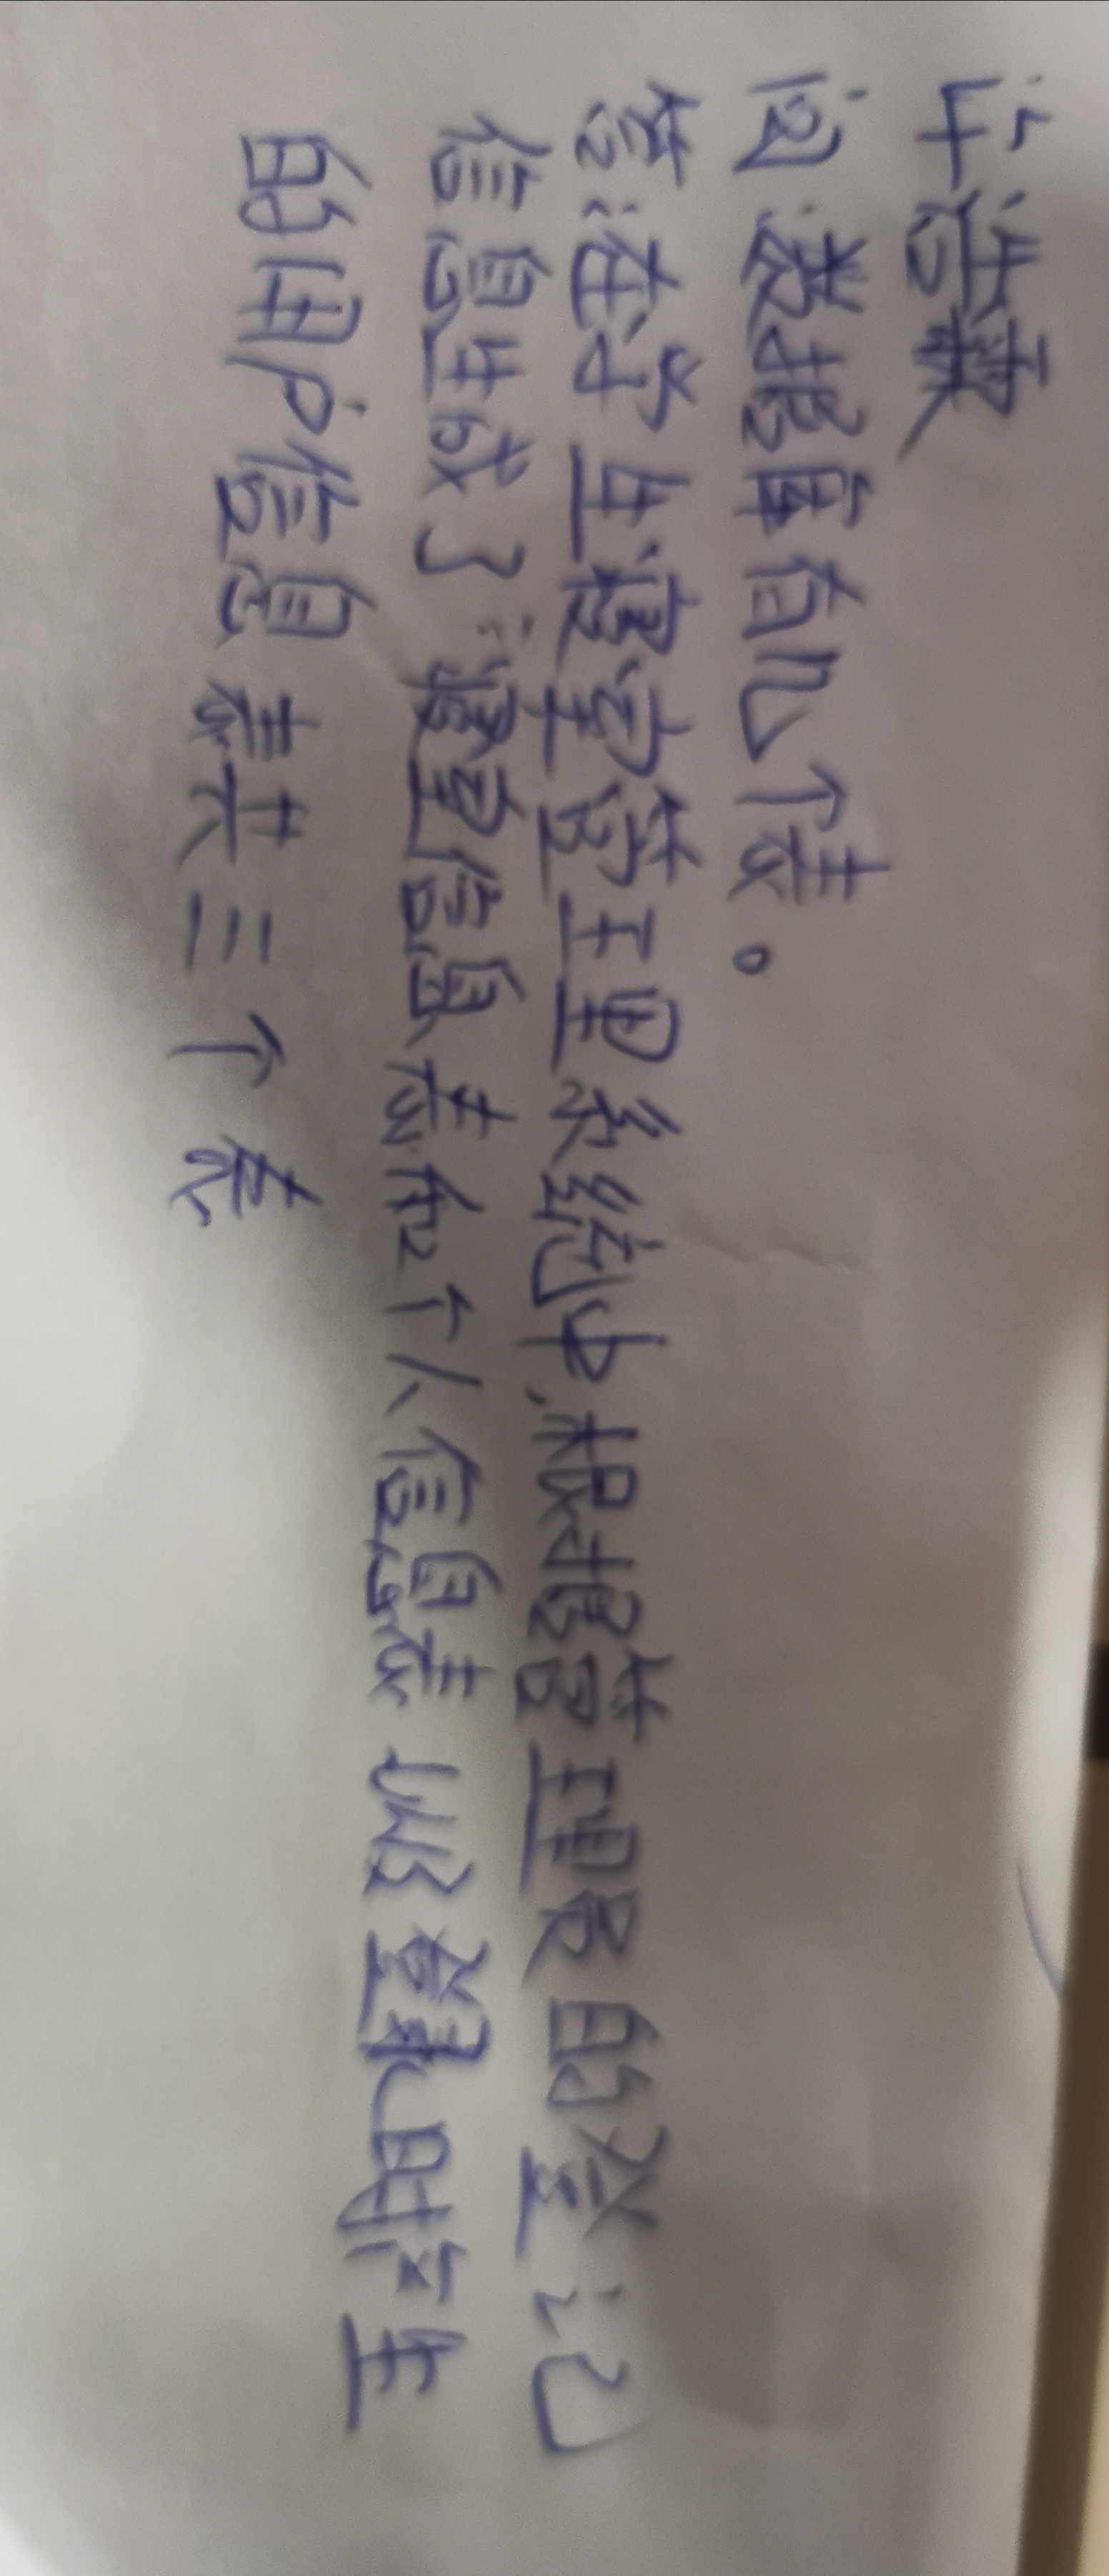 许浩霖
问:数据库有几个表。
答:在学生寝室管理系统中,根据管理员的登记
信息生成了:寝室信息表和个人信息表 以及登录时产生
的用户信息表共三个表